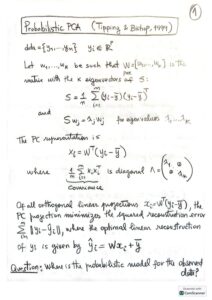 1
Probabilistic PCA (Tipping & Bishop, 1999)
data = {y₁, ..., yₙ} yᵢ ∈ ℝᵖ
Let w₁, ..., wₖ be such that W = [w₁, ..., wₖ] is the
matrix with the k eigenvectors of S:
S = 1/n Σ (yᵢ - ȳ)(yᵢ - ȳ)ᵀ
and
S wⱼ = λⱼ wⱼ for eigenvalues λ₁, ... λₖ
The PC representation is
xᵢ = Wᵀ(yᵢ - ȳ)
where 1/n Σ xᵢ xᵢᵀ is diagonal Λ =
covariance
Of all orthogonal linear projections xᵢ = Wᵀ(yᵢ - ȳ), the
PC projection minimizes the squared reconstruction error
Σ ‖yᵢ - ŷᵢ‖, where the optimal linear reconstruction
of yᵢ is given by ŷᵢ = W xᵢ + ȳ
Question: Where is the probabilistic model for the observed
data?
CamScanner